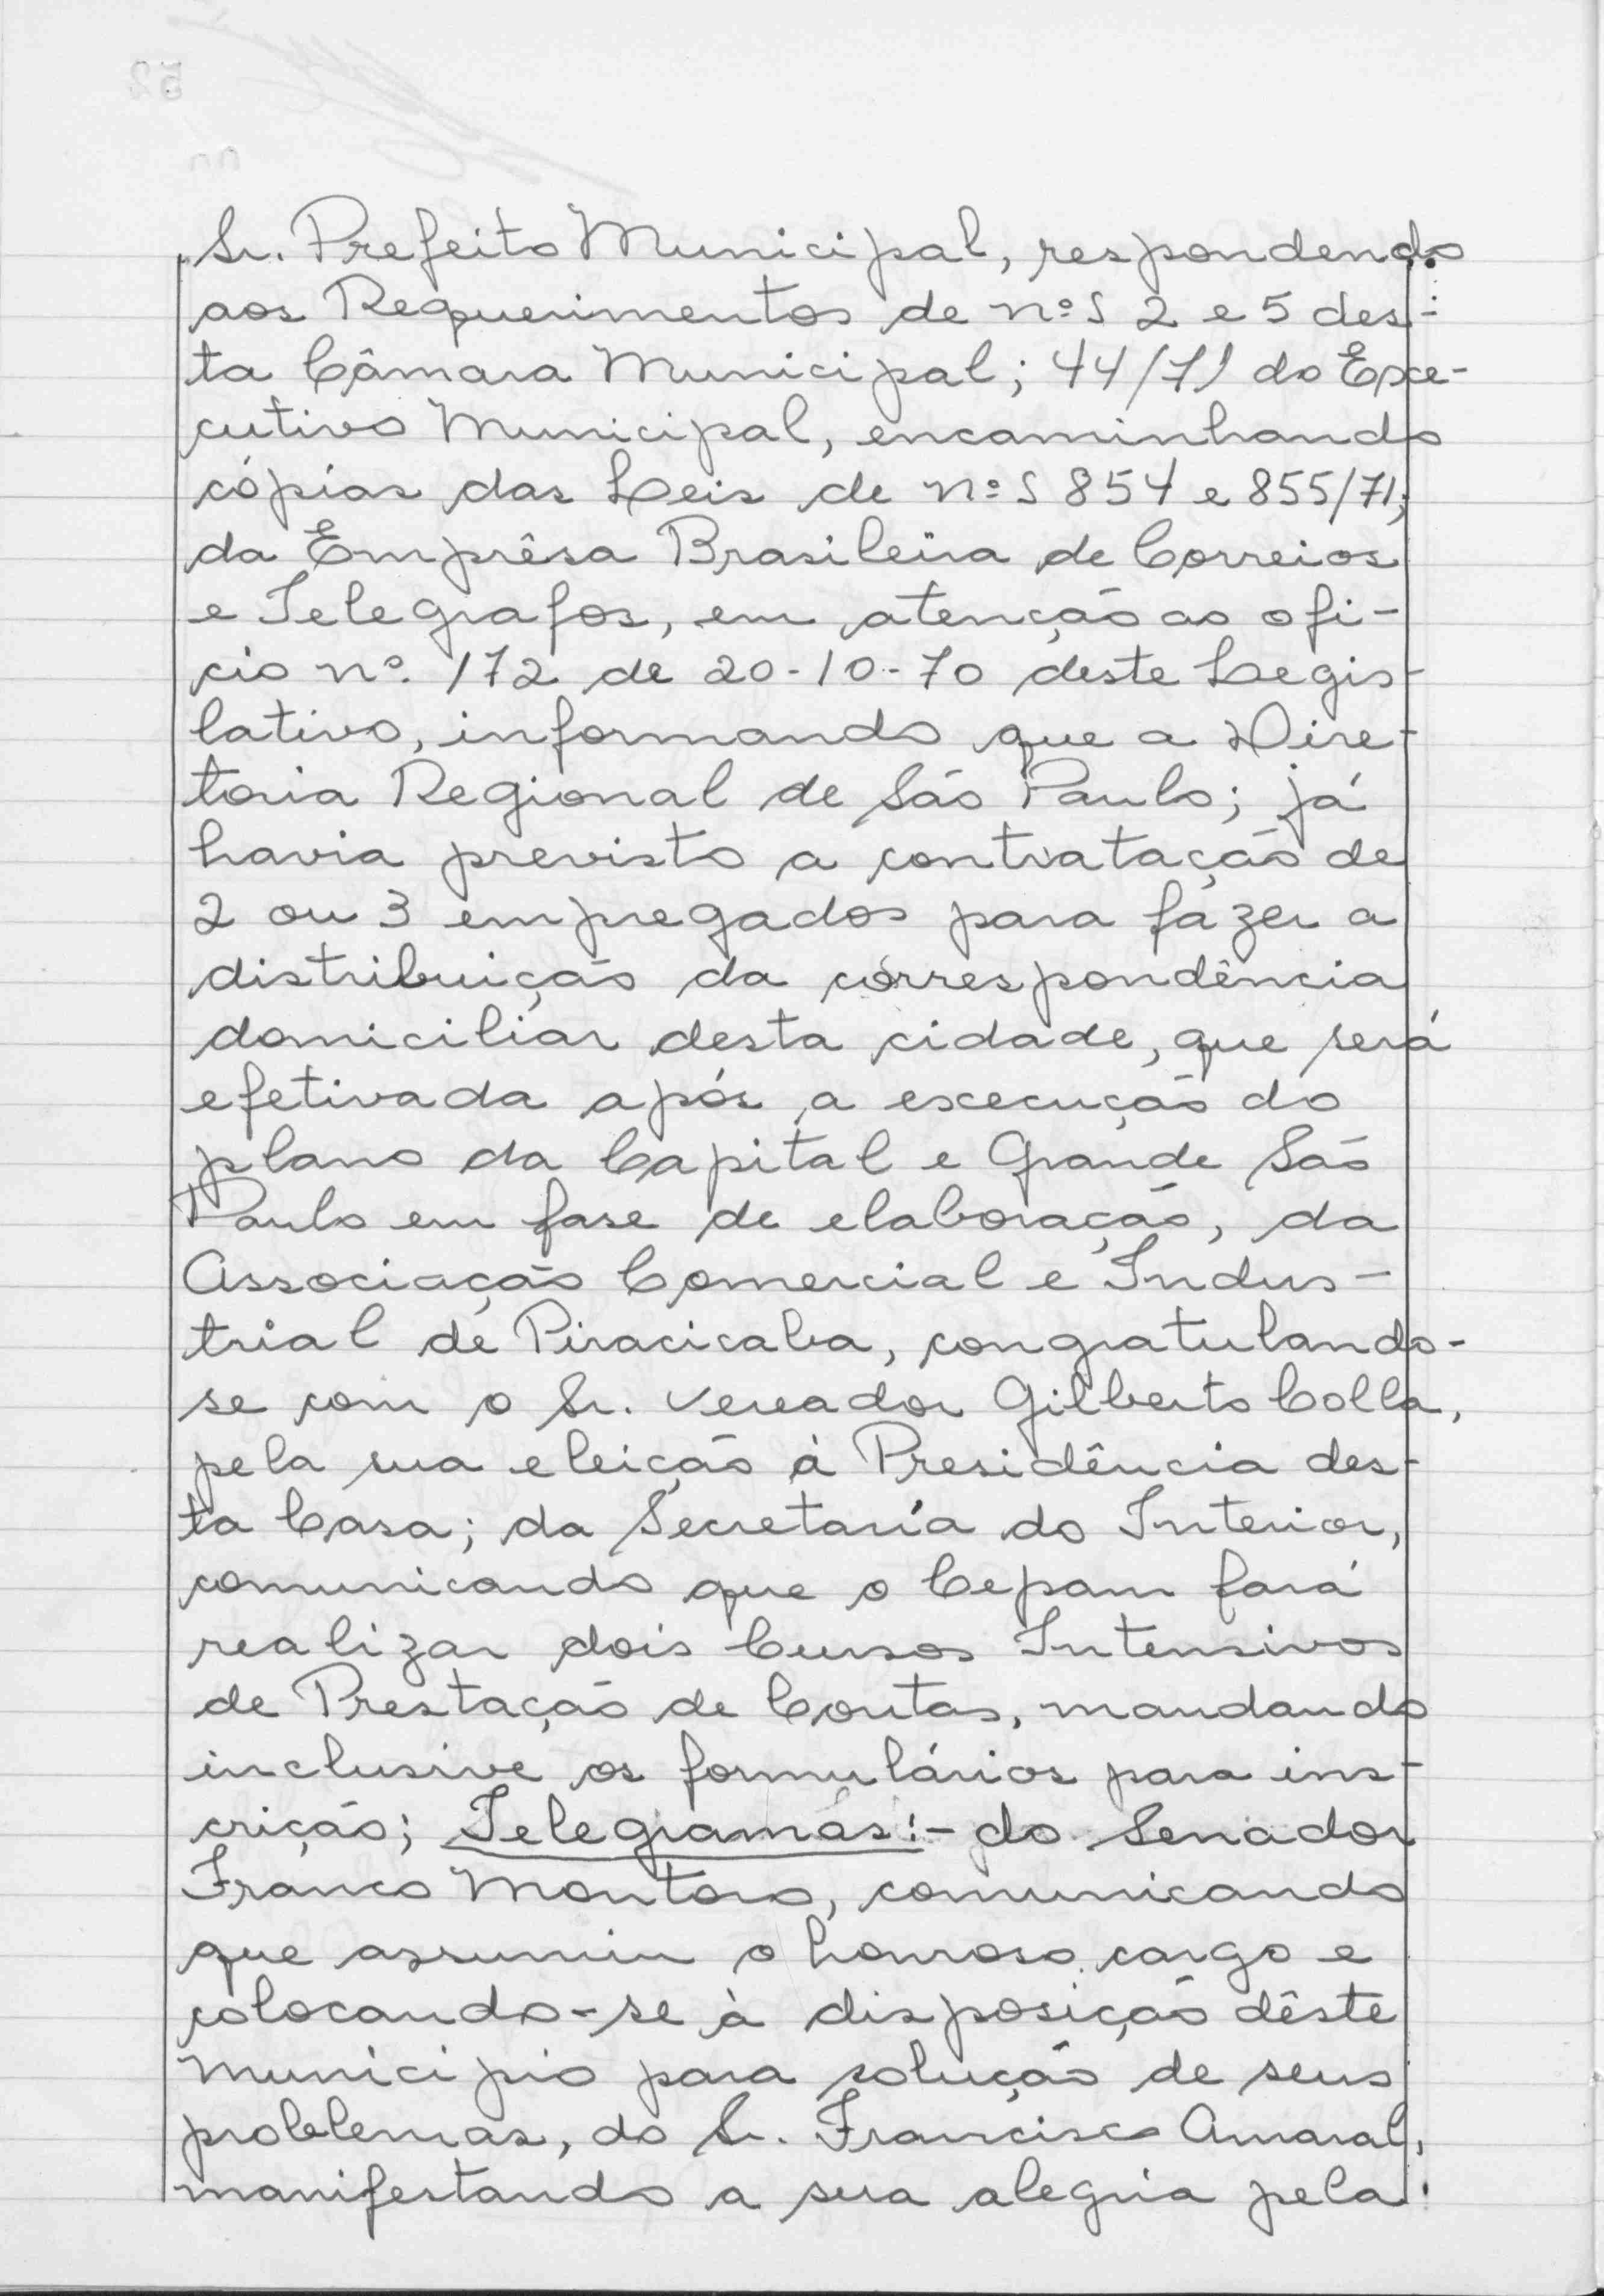 Sr. Prefeito Municipal, respondendo
aos Requerimentos de nºs 2 e 5 des-
ta Câmara Municipal; 44/71 do Exe-
cutivo Municipal, encaminhando
cópias das Leis de nºs 854 e 855/71;
da Emprêsa Brasileira de Correios
e Telegrafos, em atenção ao ofi-
cio nº. 172 de 20-10-70 deste Legis-
lativo, informando que a Dire-
toria Regional de São Paulo; já
havia previsto a contratação de
2 ou 3 empregados para fazer a
distribuição da correspondência
domiciliar desta cidade, que será
efetivada após a execução do
plano da Capital e Grande São
Paulo em fase de elaboração, da
Associação Comercial e Indus-
trial de Piracicaba, congratulando-
se com o Sr. Vereador Gilberto Colla,
pela sua eleição à Presidência des-
ta Casa; da Secretaría do Interior,
comunicando que o Cepam fará
realizar dois Cursos Intensivos
de Prestação de Contas, mandando
inclusive os formulários para ins-
crição; Telegramas:- do Senador
Franco Montoro, comunicando
que assumiu o honroso cargo e
colocando-se à disposição dêste
Municipio para solução de seus
problemas, do Sr. Francisco Amaral,
manifestando a sua alegria pela